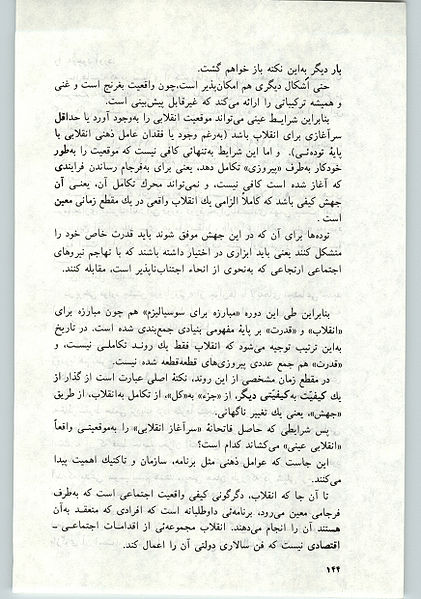 بار دیگر به‌این نکته باز خواهم گشت.
حتی أشکال دیگری هم امکان‌پذیر است،چون واقعیت بغرنج است و غنی
و همیشه ترکیباتی را ارائه می‌کند که غیرقابل پیش‌بینی است.
بنابراین شرایـط عینی می‌تواند موقعیت انقلابی را به‌وجود آورد یا حداقل
سرآغازی برای انقلاب باشد (به‌رغم وجود یا فقدان عامل ذهنی انقلابی با
پایهٔ توده‌ئـی). و اما این شرایط به‌تنهائی کافی نیست که موقعیت را به‌طور
خودکار به‌طرف «پیروزی» تکامل دهد، یعنی برای به‌فرجام رساندن فرایندی
که آغاز شده است کافی نیست، و نمی‌تواند محرك تکامل آن، یعنـی آن
جهش کیفی باشد که کاملاً الزامی یك انقلاب واقعی در یك مقطع زمانی معین
است .
توده‌ها برای آن که در این جهش موفق شوند باید قدرت خاص خود را
متشکل کنند یعنی باید ابزاری در اختیار داشته باشند که با تهاجم نیروهای
اجتماعی ارتجاعی که به‌نحوی از انحاء اجتناب‌ناپذیر است، مقابله کنند.
بنابراین طی این دوره «مبارزه برای سوسیالیزم» هم چون مبارزه برای
«انقلاب» و «قدرت» بر پایهٔ مفهومی بنیادی جمع‌بندی شده است. در تاریخ
به‌این ترتیب توجیه می‌شود که انقلاب فقط یك رونـد تکاملـی نیسـت، و
«قدرت» هم جمع عددی پیروزی‌های قطعه‌قطعه شده نیست.
در مقطع زمان مشخصی از این روند، نکتهٔ اصلی عبارت است از گذار از
یك کیفیّت به‌کیفیّتی دیگر، از «جزء» به«کل»، از تکامل به‌انقلاب، از طریق
«جهش»، یعنی یك تغییر ناگهانی.
پس شرایطی که حاصل فاتحانهٔ «سرآغاز انقلابی» را به‌موقعیتـی واقعاً
«انقلابی عینی» می‌کشاند کدام است؟
این جاست که عوامل ذهنی مثل برنامه، سازمان و تاکتیك اهمیت پیدا
می‌کنند.
تا آن جا که انقلاب، دگرگونی کیفی واقعیت اجتماعی است که به‌طرف
فرجامی معین می‌رود، برنامه‌ئی داوطلبانه است که افرادی که متعقـد به‌آن
هستند آن را انجام می‌دهند. انقلاب مجموعه‌ئی از اقدامـات اجتماعـی ـ
اقتصادی نیست که فن سالاری دولتی آن را اعمال کند.
۱۴۴